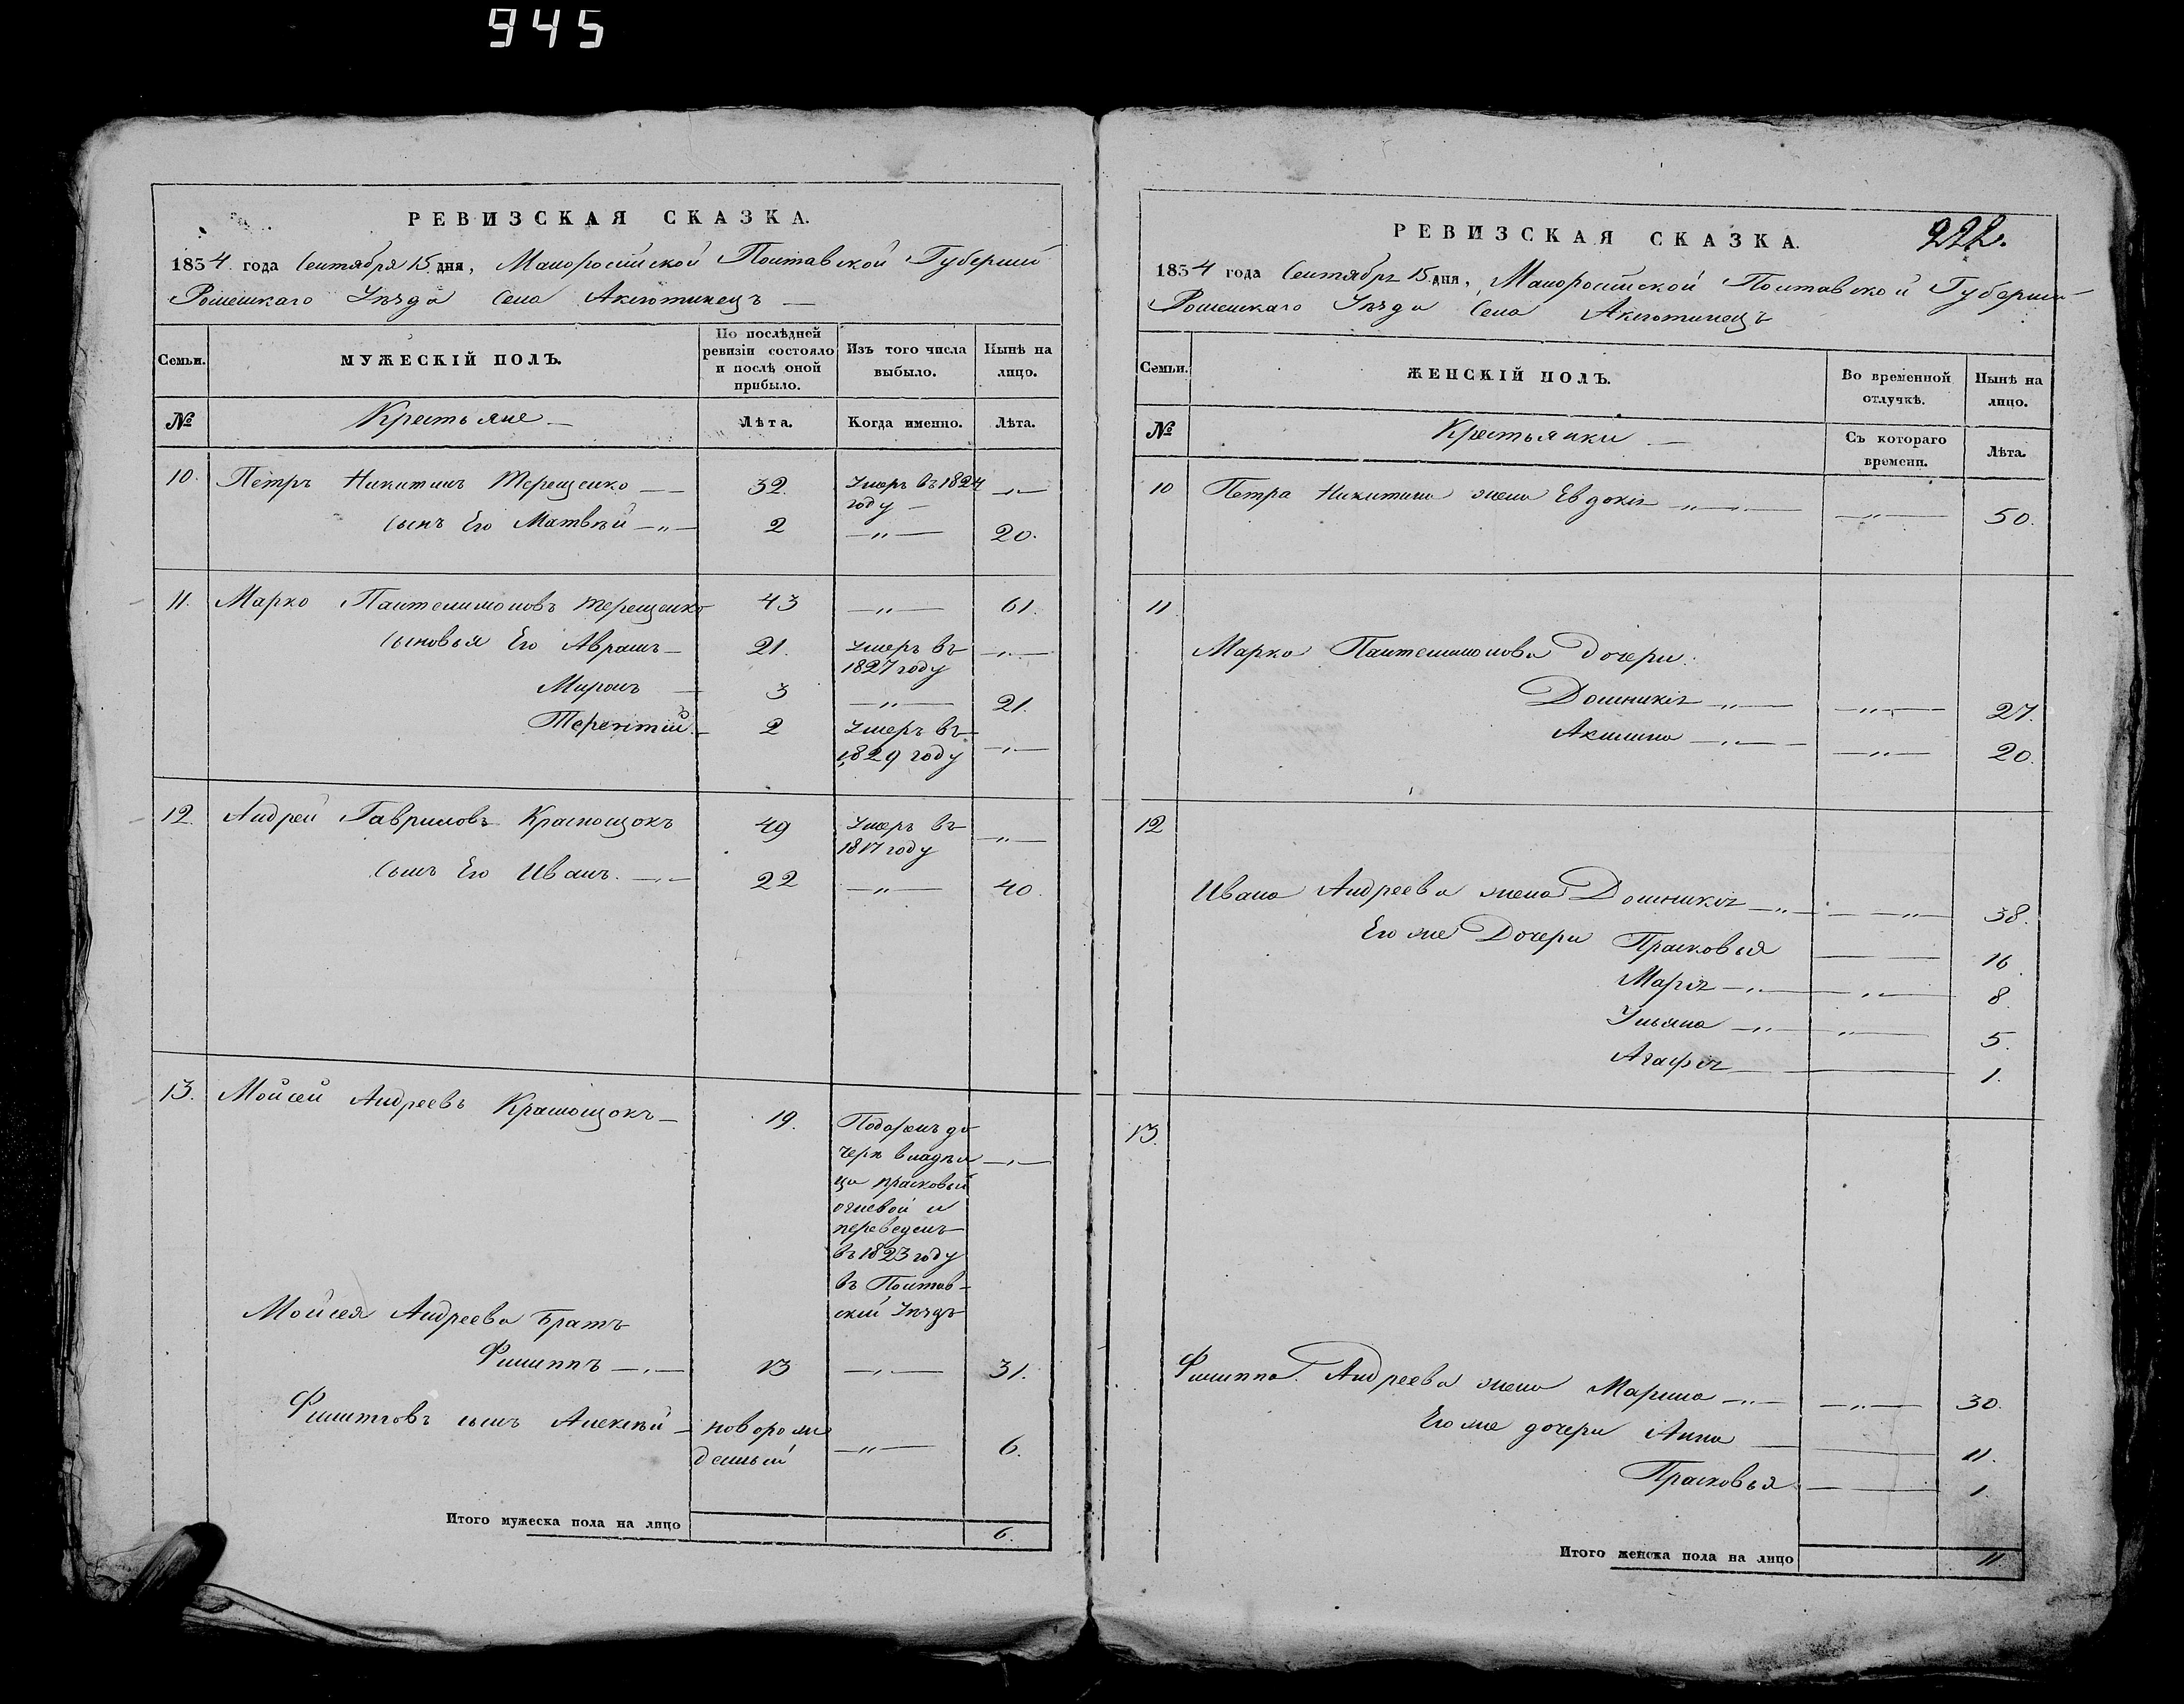 945
РЕВИЗСКАЯ СКАЗКА.
1834 года Сентября 15 дня, Малоросійской Полтавской Губерніи
Роменскаго Уѣзда Села Аксютинецъ —
Семьи.
МУЖЕСКІЙ ПОЛЪ.
По послѣдней ревизіи состояло и послѣ оной прибыло.
Изъ того числа выбыло.
Нынѣ на лицо.
№
Крестьяне —
Лѣта.
Когда именно.
Лѣта.
10. Петръ Никитинъ Терещенко — 32. Умеръ въ 1824 —„—
году —
сынъ Его Матвѣй —„— 2 —„— 20.
11. Марко Пантелимоновъ Терещенко 43 —„— 61.
сыновья Его Аврамъ — 21. Умеръ въ —„—
1827 году
Миронъ — 3 —„— 21.
Терентій — 2 Умеръ въ —„—
1829 году
12. Андрей Гавриловъ Краснощокъ 49 Умеръ въ —„—
1817 году
сынъ Его Иванъ. —„— 22 —„— 40.
13. Мойсей Андреевъ Краснощокъ — 19. Подаренъ до
черѣ владѣл —„—
ца прасковьи
огневой и
переведенъ
въ 1823 году
въ Полтав-
скій Уѣздъ
Мойсея Андреева Братъ
Филиппъ —„— 13 —„— 31.
Филиповъ сынъ Алексѣй — новорож
денный —„— 6.
Итого мужеска пола на лицо 6.
РЕВИЗСКАЯ СКАЗКА.
222.
1834 года Сентября 15 дня, Малоросійской Полтавской Губерніи
Роменскаго Уѣзда Села Аксютинецъ
Семьи.
ЖЕНСКІЙ ПОЛЪ.
Во временной отлучкѣ.
Нынѣ на лицо.
№
Крестьянки —
Съ котораго времени.
Лѣта.
10 Петра Никитина жена Евдокія —„— —„— 50.
11
Марка Пантелимонова Дочери:
Домникія —„— —„— 27.
Акилина —„— —„— 20.
12
Ивана Андреева жена Домникія —„— —„— 38.
Его же Дочери Прасковья — 16.
Марія —„— —„— 8.
Ульяна —„— —„— 5.
Агафія — 1.
13.
Филиппа Андреева жена Марина —„— —„— 30.
Его же дочери Анна — 11.
Прасковья — 1.
Итого женска пола на лицо 11